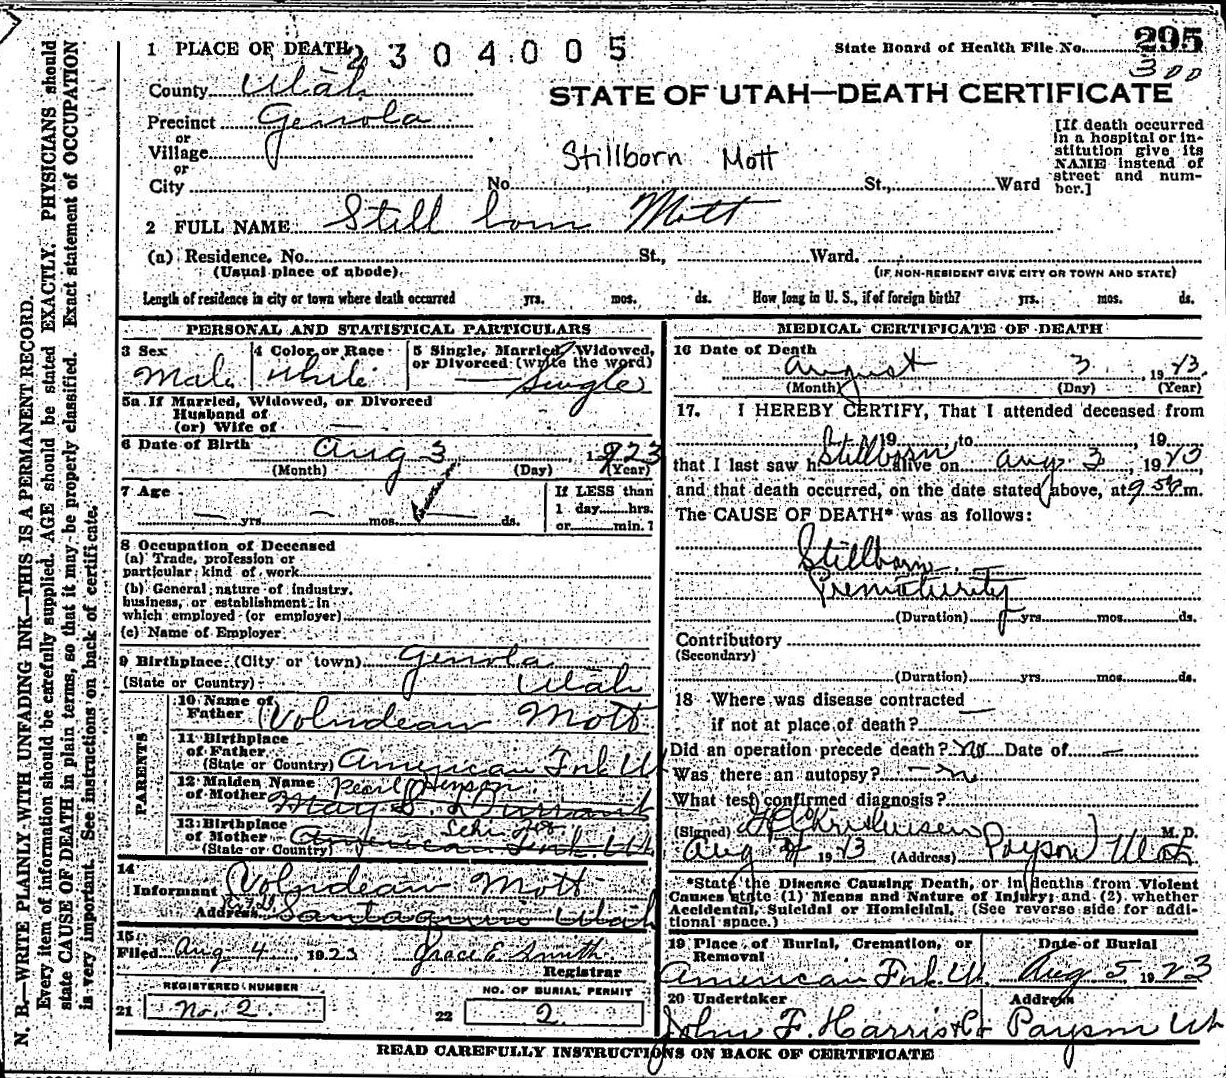 1 PLACE OF DEATH
2304005
State Board of Health File No. 295
300
County Utah
STATE OF UTAH—DEATH CERTIFICATE
Precinct Genola
or
Village
or
City No. St., Ward
Stillborn Mott
[If death occurred in a hospital or institution give its NAME instead of street and number.]
2 FULL NAME Still born Mott
(a) Residence. No. St., Ward.
(Usual place of abode). (IF NON-RESIDENT GIVE CITY OR TOWN AND STATE)
Length of residence in city or town where death occurred yrs. mos. ds. How long in U. S., if of foreign birth? yrs. mos. ds.
PERSONAL AND STATISTICAL PARTICULARS
3 Sex Male
4 Color or Race White
5 Single, Married, Widowed, or Divorced (write the word) Single
5a If Married, Widowed, or Divorced
Husband of
(or) Wife of —
6 Date of Birth Aug 3 1923
(Month) (Day) (Year)
7 Age — yrs. — mos. ds.
If LESS than
1 day hrs.
or min.?
8 Occupation of Deceased
(a) Trade, profession or
particular kind of work
(b) General nature of industry,
business, or establishment in
which employed (or employer)
(c) Name of Employer
9 Birthplace (City or town) Genola
(State or Country) Utah
PARENTS
10 Name of Father Volndean Mott
11 Birthplace of Father
(State or Country) American Fork Ut
12 Maiden Name of Mother Pearl
Mary S. Durrant
13 Birthplace of Mother Lehi
(State or Country) American Fork. Ut
14
Informant Volndean Mott
Address Santaquin Utah
15
Filed Aug 4 1923 Grace E Smith
Registrar
REGISTERED NUMBER
21 No. 2.
NO. OF BURIAL PERMIT
22 2.
MEDICAL CERTIFICATE OF DEATH
16 Date of Death
August 3 1923.
(Month) (Day) (Year)
17. I HEREBY CERTIFY, That I attended deceased from
19 , to , 19
Stillborn
that I last saw h alive on Aug 3, 1923,
and that death occurred, on the date stated above, at 9.50 m.
The CAUSE OF DEATH* was as follows:
Stillborn
Prematurity
(Duration) yrs. mos. ds.
Contributory
(Secondary)
(Duration) yrs. mos. ds.
18 Where was disease contracted
if not at place of death? —
Did an operation precede death? No Date of —
Was there an autopsy? — no
What test confirmed diagnosis?
(Signed) Christensen M. D.
Aug 1923 (Address) Payson Utah
*State the Disease Causing Death, or in deaths from Violent
Causes state (1) Means and Nature of Injury; and (2) whether
Accidental, Suicidal or Homicidal. (See reverse side for additional space.)
19 Place of Burial, Cremation, or Removal
American Fork U.
Date of Burial
Aug 5 1923
20 Undertaker
John F. Harris
Address
Payson Ut
READ CAREFULLY INSTRUCTIONS ON BACK OF CERTIFICATE
N. B.—WRITE PLAINLY WITH UNFADING INK—THIS IS A PERMANENT RECORD.
Every item of information should be carefully supplied. AGE should be stated EXACTLY. PHYSICIANS should
state CAUSE OF DEATH in plain terms, so that it may be properly classified. Exact statement of OCCUPATION
is very important. See instructions on back of certificate.